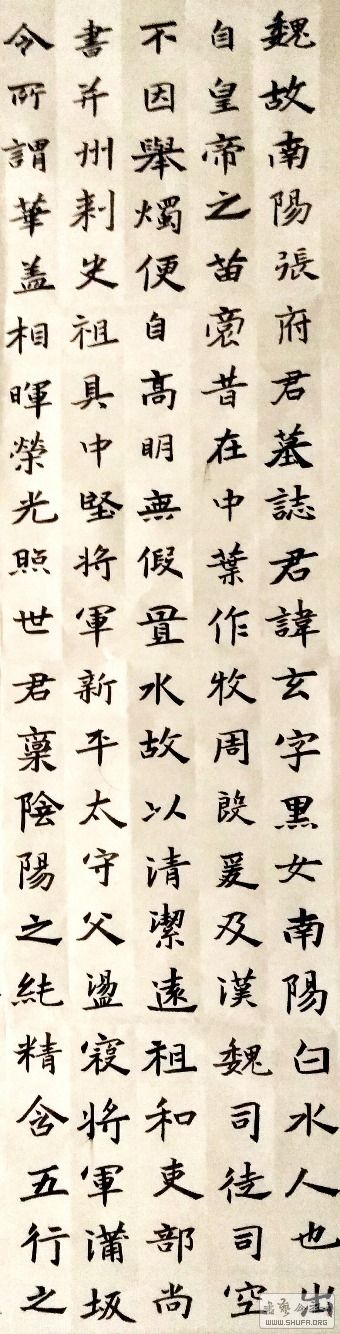 魏故南陽張府君墓誌君諱玄字黑女南陽白水人也出
自皇帝之苗裔昔在中葉作牧周殷爰及漢魏司徒司空
不因舉燭便自高明無假置水故以清潔遠祖和吏部尚
書并州刺史祖具中堅將軍新平太守父盪寇將軍蒲坂
令所謂華盖相暉榮光照世君稟陰陽之純精含五行之
WWW.SHUFA.ORG